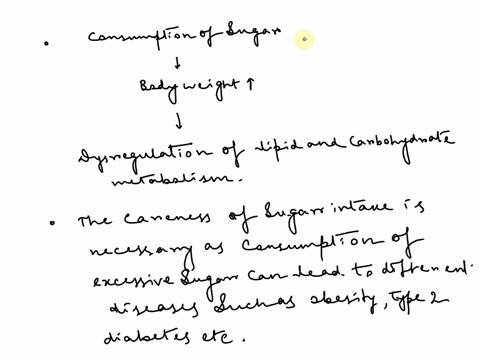 • Consumption of Sugar
↓
Body weight ↑
↓
Dysregulation of lipid and Carbohydrate
metabolism.
• The careness of Sugar intake is
necessary as Consumption of
excessive Sugar can lead to different
diseases Such as obesity, Type 2
diabetes etc.